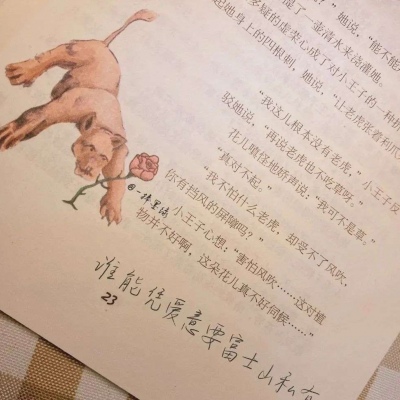 ？”她说，“能不能
提了一壶清水来浇灌她。
多疑的虚荣心成了对小王子的一种折
起她身上的四根刺，她说，“让老虎张着利爪
“我这儿根本没有老虎，”小王子反
驳她说，“再说老虎也不吃草呀。”
花儿嗔怪地娇声说：“我可不是草。”
“真对不起。”
“我不怕什么老虎，却受不了风吹，
你有挡风的屏障吗？”
小王子心想：“害怕风吹……这对植
物并不好啊，这朵花儿真不好伺候……”
谁能凭爱意要富士山私有
23